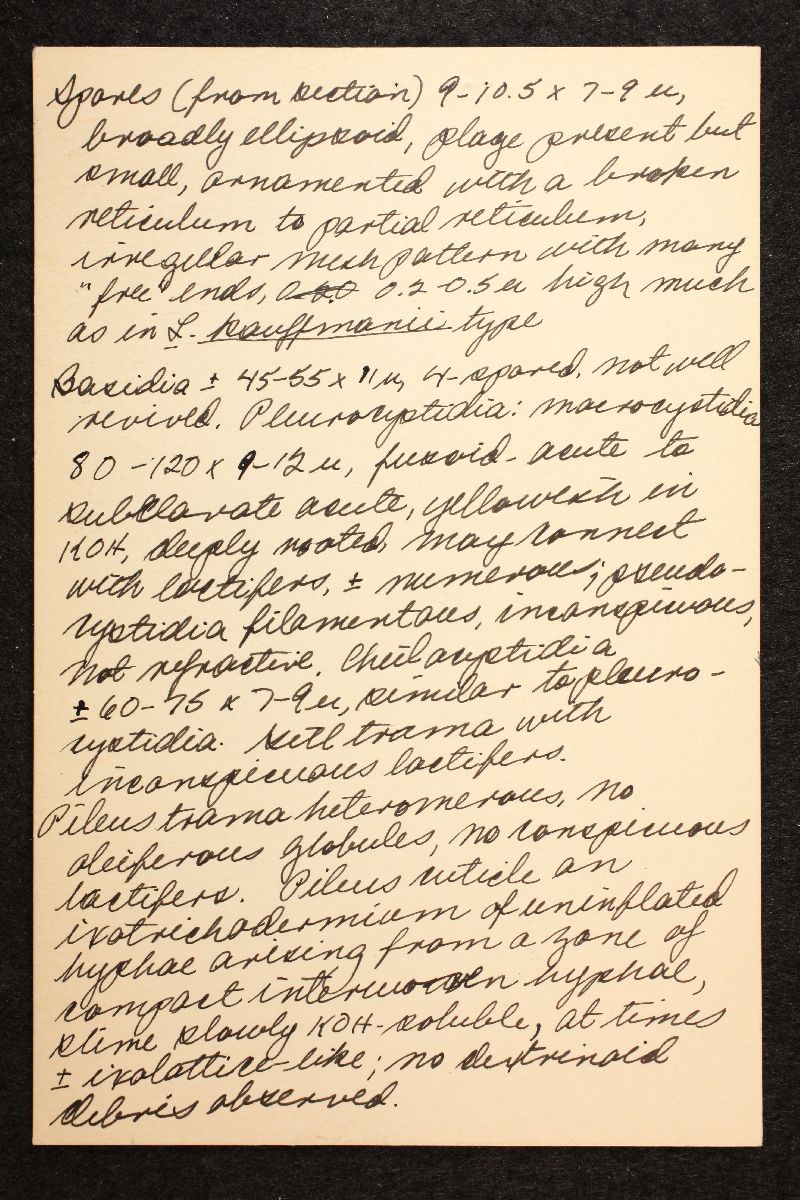 Spores (from section) 9-10.5 x 7-9 u,
broadly ellipsoid, plage present but
small, ornamented with a broken
reticulum to partial reticulum,
irregular mesh pattern with many
"free" ends, 0.2-0.5 u high much
as in L. kauffmanii type
Basidia ± 45-55 x 11 u, 4-spored, not well
revived. Pleurocystidia: macrocystidia
80-120 x 9-12 u, fusoid-acute to
subclavate acute, yellowish in
KOH, deeply rooted, may connect
with lactifers, ± numerous; pseudo-
cystidia filamentous, inconspicuous,
not refractive. Cheilocystidia
± 60-75 x 7-9 u, similar to pleuro-
cystidia. Gill trama with
inconspicuous lactifers.
Pileus trama heteromerous, no
oleiferous globules, no conspicuous
lactifers. Pileus cuticle an
ixotrichodermium of uninflated
hyphae arising from a zone of
compact interwoven hyphae,
slime slowly KOH-soluble, at times
± ixolattice-like; no dextrinoid
debris observed.